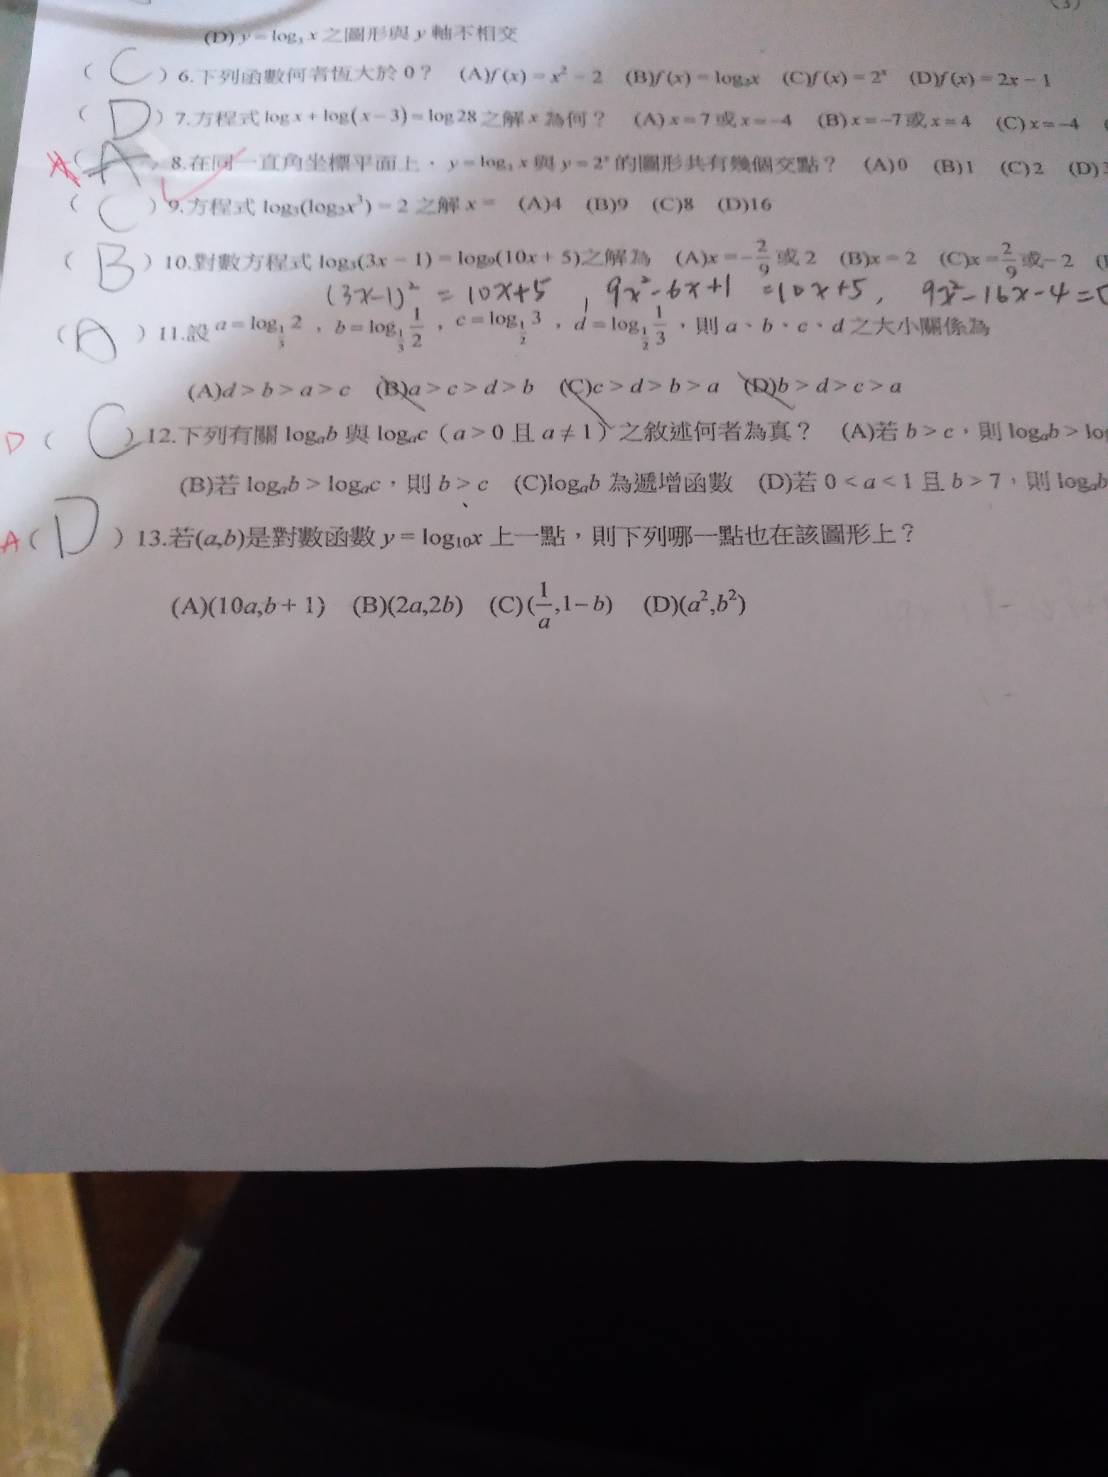 (D) y = log₃ x 之圖形與 y 軸不相交
( C ) 6.下列函數何者恆大於 0？ (A)f(x) = x² − 2 (B)f(x) = log₂x (C)f(x) = 2ˣ (D)f(x) = 2x − 1
( D ) 7.方程式 log x + log(x − 3) = log 28 之解 x 為何？ (A) x = 7 或 x = −4 (B) x = −7 或 x = 4 (C) x = −4
A ( A ) 8.在同一直角坐標平面上，y = log₃ x 與 y = 2ˣ 的圖形共有幾個交點？ (A) 0 (B) 1 (C) 2 (D)
( C ) 9.方程式 log₃(log₂x³) = 2 之解 x = (A)4 (B)9 (C)8 (D)16
( B ) 10.對數方程式 log₃(3x − 1) = log₉(10x + 5)之解為 (A)x = −2/9 或 2 (B)x = 2 (C)x = 2/9 或 − 2
(3x-1)² = 10x+5 , 9x²-6x+1 =10x+5 , 9x²-16x-4=0
( A ) 11.設 a = log_{1/3} 2，b = log_{1/3} 1/2，c = log_{1/2} 3，d = log_{1/2} 1/3，則 a、b、c、d 之大小關係為
(A)d > b > a > c (B)a > c > d > b (C)c > d > b > a (D)b > d > c > a
D ( C ) 12.下列有關 logₐb 與 logₐc（a > 0 且 a ≠ 1）之敘述何者為真？ (A)若 b > c，則 logₐb >
(B)若 logₐb > logₐc，則 b > c (C)logₐb 為遞增函數 (D)若 0 < a < 1 且 b > 7，則 logₐb
A ( D ) 13.若(a,b)是對數函數 y = log₁₀x 上一點，則下列哪一點也在該圖形上？
(A)(10a,b + 1) (B)(2a,2b) (C)(1/a,1− b) (D)(a²,b²)